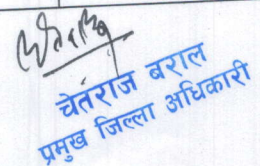 चेतराज बराल
प्रमुख जिल्ला अधिकारी